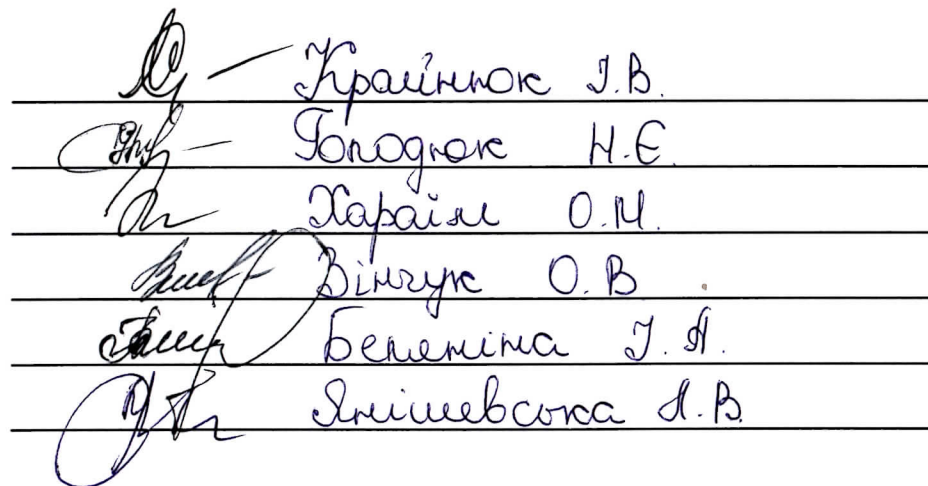 Крайнюк І.В.
Голодюк Н.Є.
Хараїм О.М.
Вінчук О.В
Беленіна І.Я.
Янішевська А.В.